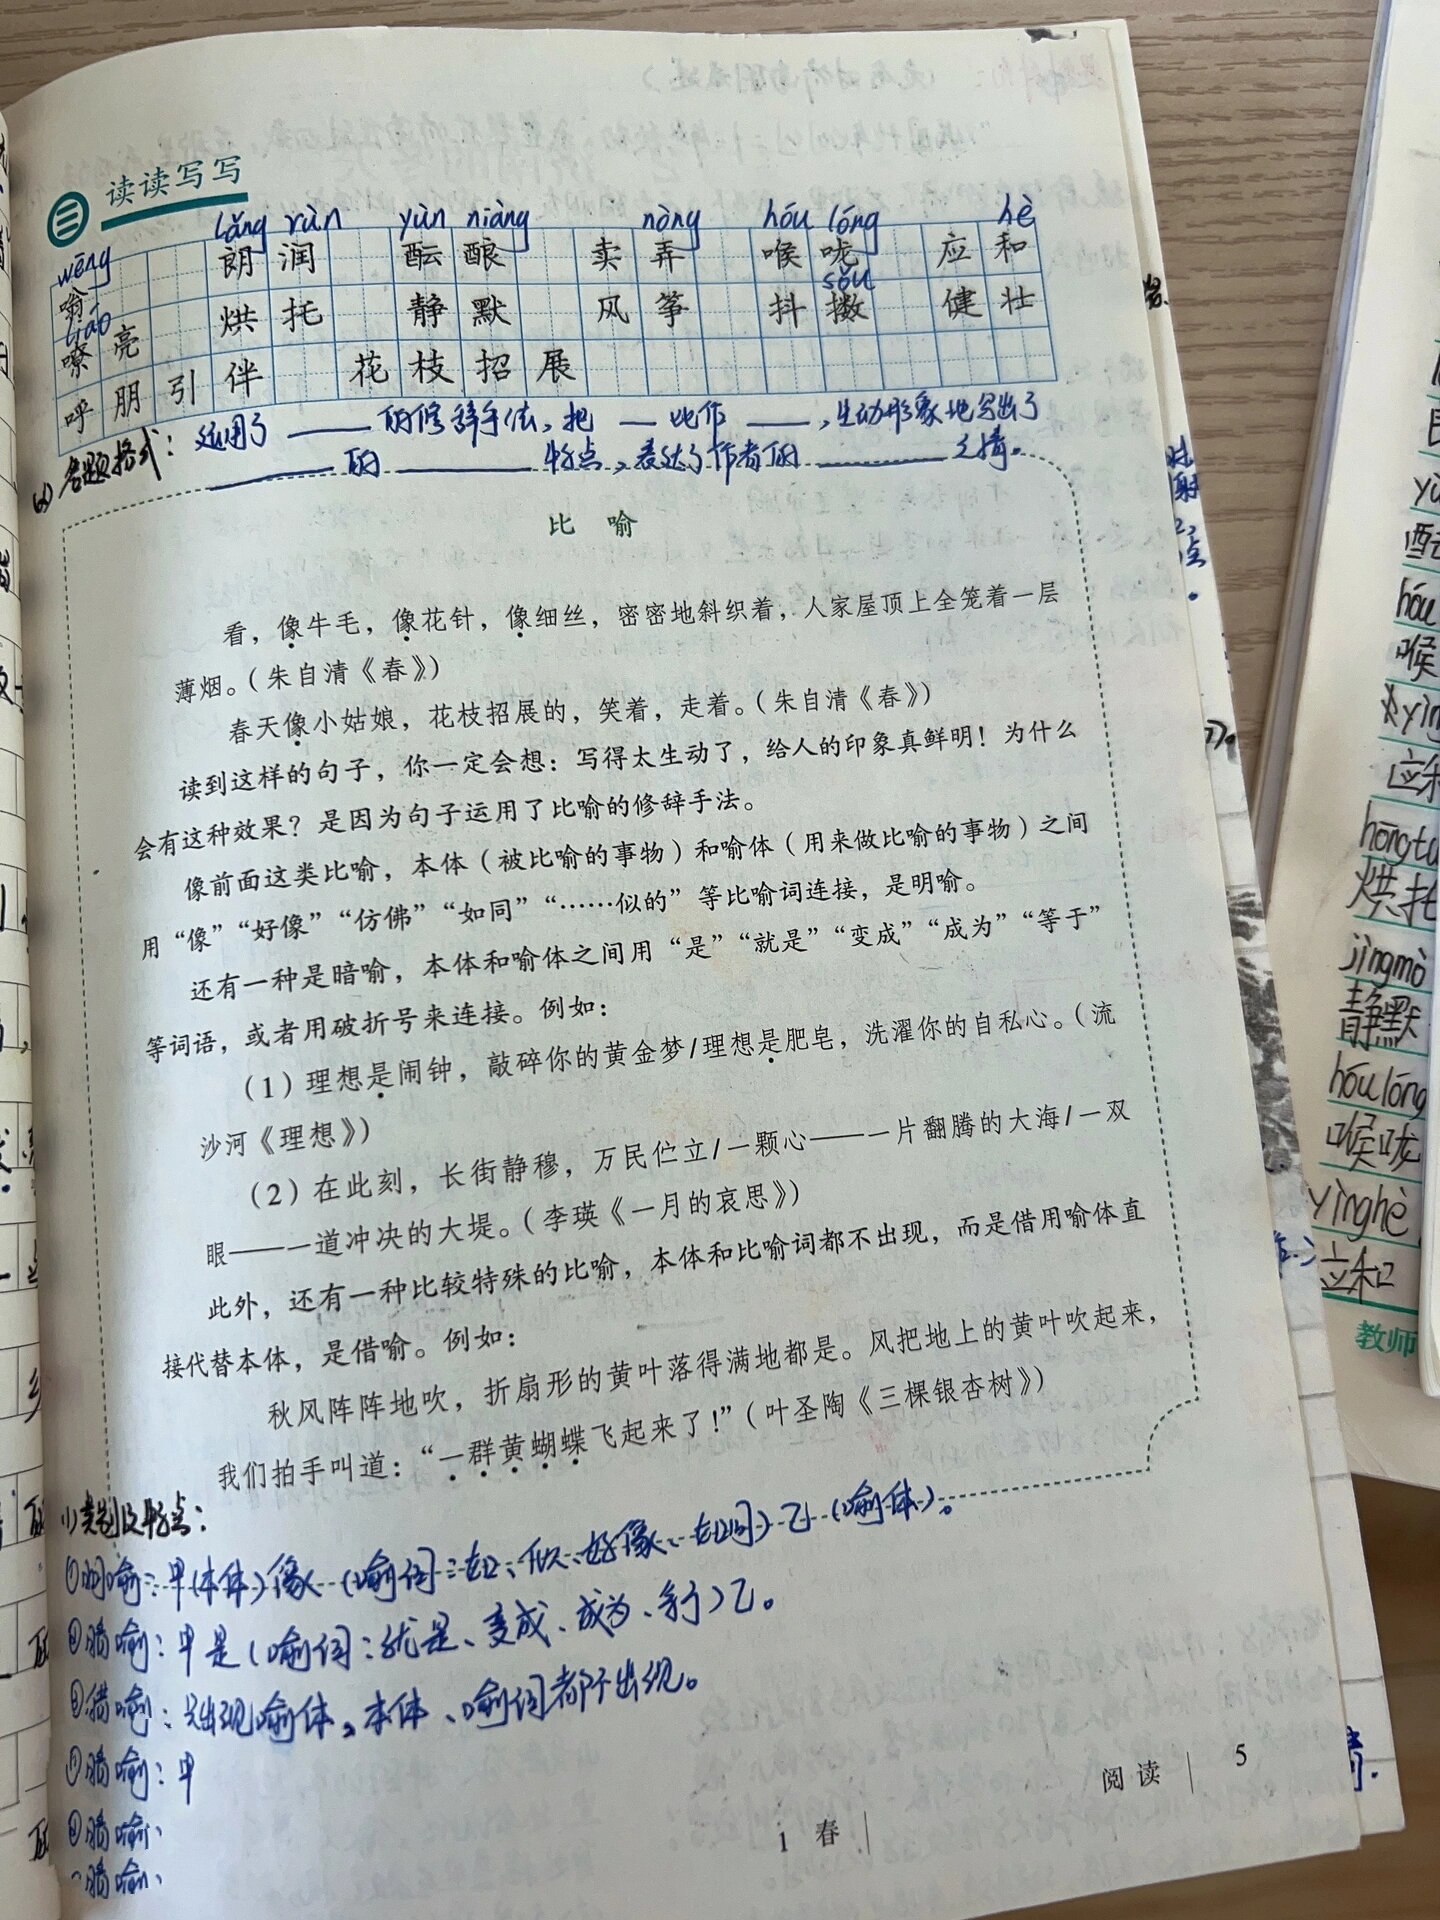 三 读读写写
lǎng rùn yùn niàng nòng hóu lóng hè
朗润 酝酿 卖弄 喉咙 应和
wēng sǒu
嗡 烘托 静默 风筝 抖擞 健壮
嘹亮
呼朋引伴 花枝招展
(2) 答题格式：运用了 ___ 的修辞手法，把 _ 比作 __，生动形象地写出了
____ 的 ____ 特点，表达了作者的 ____ 之情。
比 喻
看，像牛毛，像花针，像细丝，密密地斜织着，人家屋顶上全笼着一层
薄烟。（朱自清《春》）
春天像小姑娘，花枝招展的，笑着，走着。（朱自清《春》）
读到这样的句子，你一定会想：写得太生动了，给人的印象真鲜明！为什么
会有这种效果？是因为句子运用了比喻的修辞手法。
像前面这类比喻，本体（被比喻的事物）和喻体（用来做比喻的事物）之间
用“像”“好像”“仿佛”“如同”“……似的”等比喻词连接，是明喻。
还有一种是暗喻，本体和喻体之间用“是”“就是”“变成”“成为”“等于”
等词语，或者用破折号来连接。例如：
（1）理想是闹钟，敲碎你的黄金梦/理想是肥皂，洗濯你的自私心。（流
沙河《理想》）
（2）在此刻，长街静穆，万民伫立/一颗心——一片翻腾的大海/一双
眼——一道冲决的大堤。（李瑛《一月的哀思》）
此外，还有一种比较特殊的比喻，本体和比喻词都不出现，而是借用喻体直
接代替本体，是借喻。例如：
秋风阵阵地吹，折扇形的黄叶落得满地都是。风把地上的黄叶吹起来，
我们拍手叫道：“一群黄蝴蝶飞起来了！”（叶圣陶《三棵银杏树》）
(1) 类别及特点：
①明喻：甲(本体)像(喻词：如、似、好像、如同)乙(喻体)。
②暗喻：甲是(喻词：就是、变成、成为、等于)乙。
③借喻：只出现喻体，本体、喻词都不出现。
①暗喻：甲
②暗喻：
暗喻：
阅读 | 5
1 春 |
hóu
喉
hōngtu
烘托
jìngmò
静默
hóulóng
喉咙
yìnghè
应和
教师